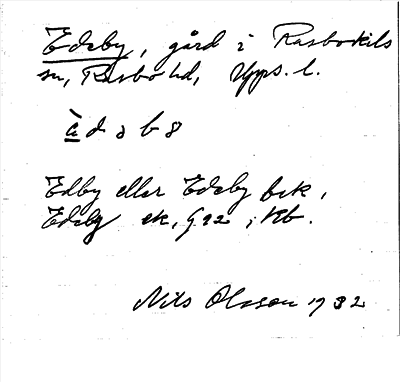 Edeby, gård i Rasbokils
sn, Rasbo hd, Upps. l.
Edby eller Edeby bek,
Edeby ek, G 92 i, Kb.
Nils Olsson 1932